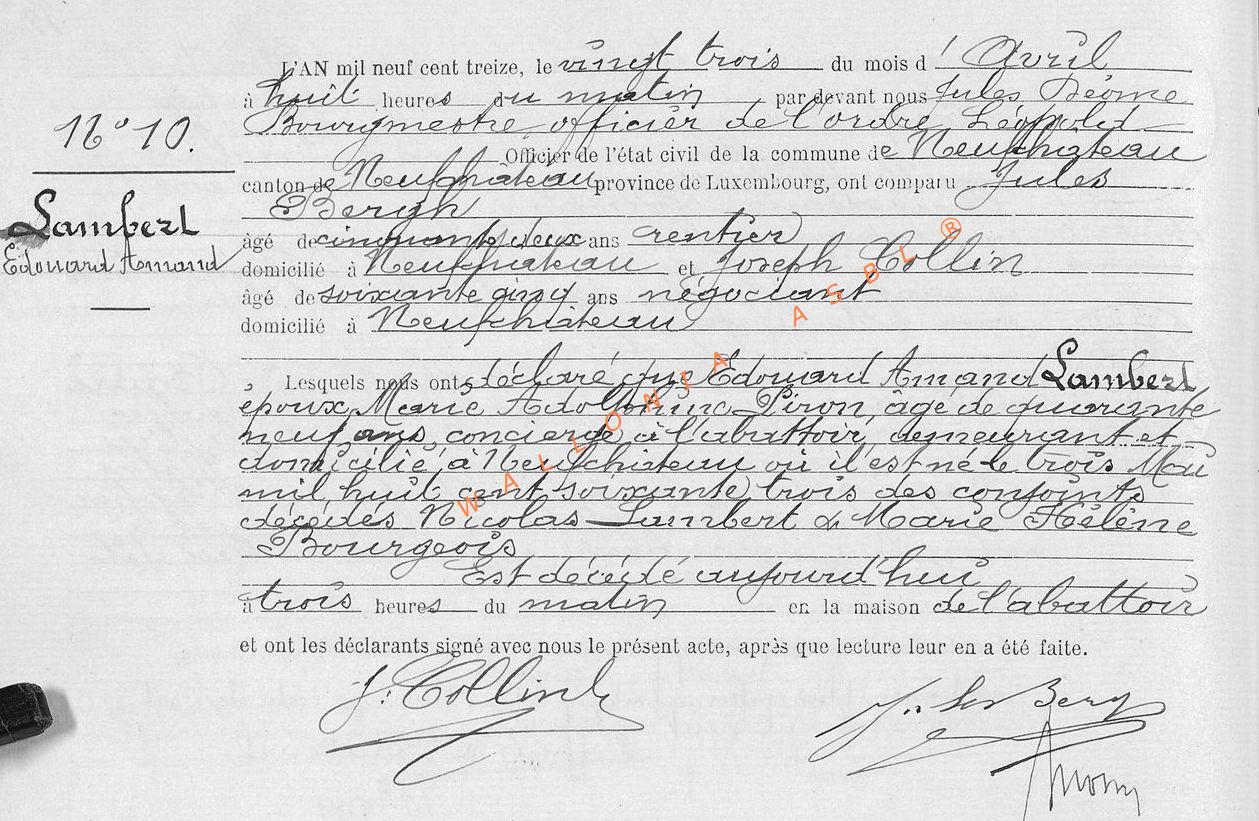 L'AN mil neuf cent treize, le vingt trois du mois d'Avril
à huit heures du matin par devant nous Jules
Bourgmestre, officier de l'ordre Léopold
Officier de l'état civil de la commune de Neufchâteau
N° 10.
canton de Neufchâteau province de Luxembourg, ont comparu Jules
Bergh
Lambert
Edouard Amand
âgé de cinquante deux ans rentier
domicilié à Neufchâteau et Joseph Collin
âgé de soixante cinq ans négociant
domicilié à Neufchâteau
Lesquels nous ont déclaré que Edouard Amand Lambert
époux Marie Adolphine Piron, âgé de quarante
neuf ans, concierge à l'abattoir, demeurant et
domicilié à Neufchâteau où il est né le trois Mai
mil huit cent soixante trois des conjoints
décédés Nicolas Lambert & Marie Hélène
Bourgeois
Est décédé aujourd'hui
à trois heures du matin en la maison de l'abattoir
et ont les déclarants signé avec nous le présent acte, après que lecture leur en a été faite.
J. Collin
WALLONIA ASBL ®